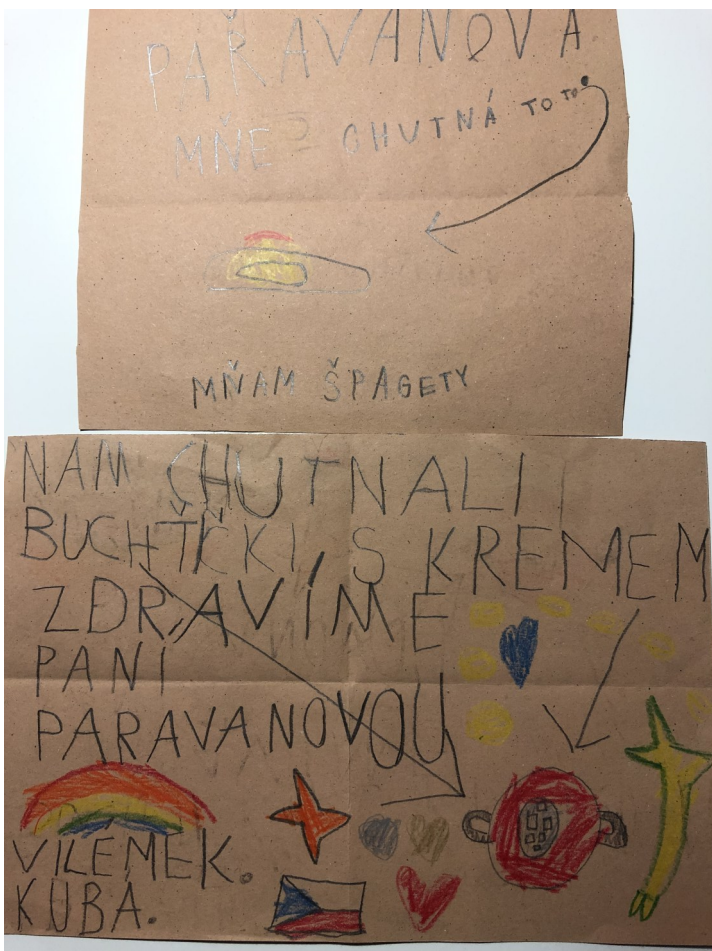 PAŘAVANOVA
MŇE CHUTNÁ TOTO
MŇAM ŠPAGETY
NAM CHUTNALI
BUCHTIČKI, S KREMEM
ZDRAVÍME
PANÍ
PARAVANOVOU
VILÉMEK.
KUBA.